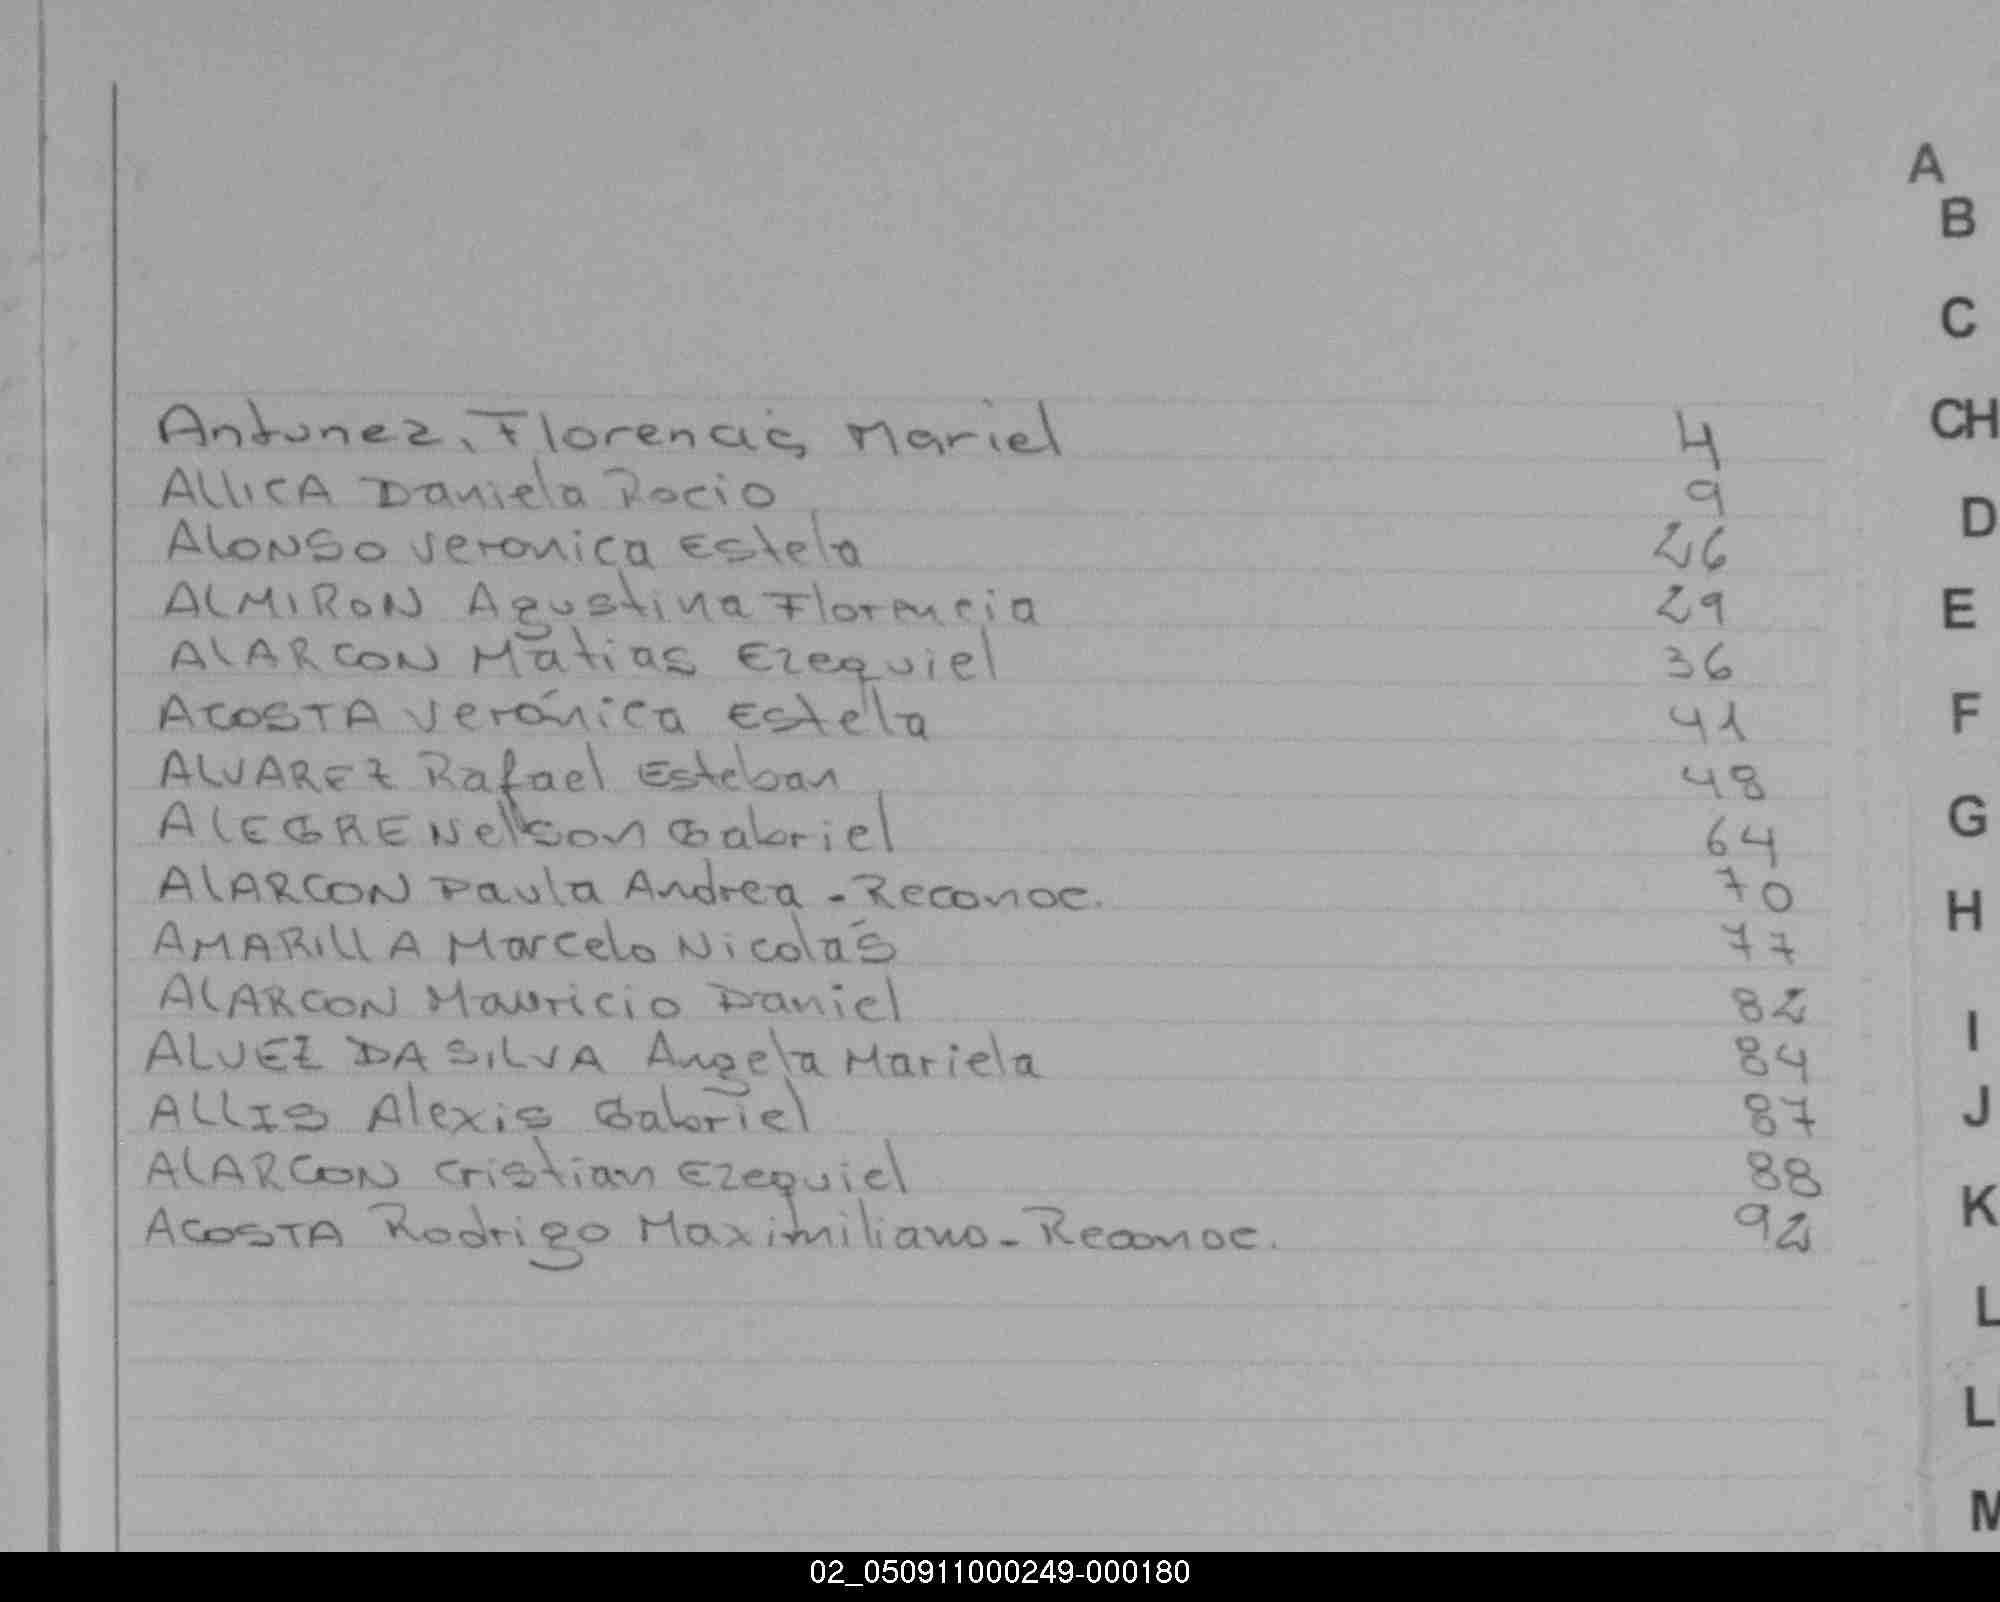 Antunez, Florencia Mariel 4
ALLICA Daniela Rocio 9
ALONSO Veronica Estela 26
ALMIRON Agustina Florencia 29
ALARCON Matias Ezequiel 36
ACOSTA Verónica Estela 41
ALVAREZ Rafael Esteban 48
ALEGRE Nelson Gabriel 64
ALARCON Paula Andrea - Reconoc. 70
AMARILLA Marcelo Nicolás 77
ALARCON Mauricio Daniel 82
ALVEZ DA SILVA Angela Mariela 84
ALLIS Alexis Gabriel 87
ALARCON Cristian Ezequiel 88
ACOSTA Rodrigo Maximiliano - Reconoc. 92
A
B
C
CH
D
E
F
G
H
I
J
K
L
LL
M
02_050911000249-000180